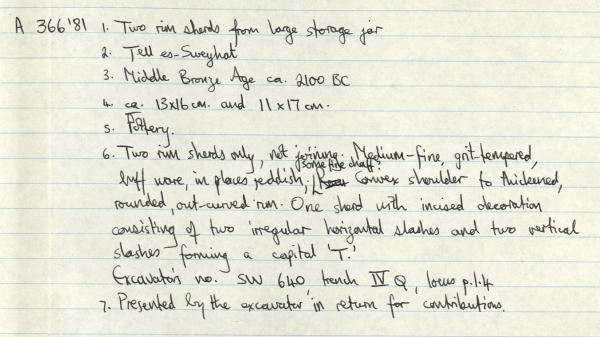 A 366'81 1. Two rim sherds from large storage jar
2. Tell es-Sweyhat
3. Middle Bronze Age ca. 2100 BC
4. ca. 13x16cm. and 11x17cm.
5. Pottery.
6. Two rim sherds only, not joining. Medium-fine, grit-tempered,
some fine chaff?
buff ware, in places reddish, Convex shoulder to thickened,
rounded, out-curved rim. One sherd with incised decoration
consisting of two irregular horizontal slashes and two vertical
slashes forming a capital 'T.'
Excavator's no. SW 640, trench IV Q, locus p.1.4
7. Presented by the excavator in return for contributions.